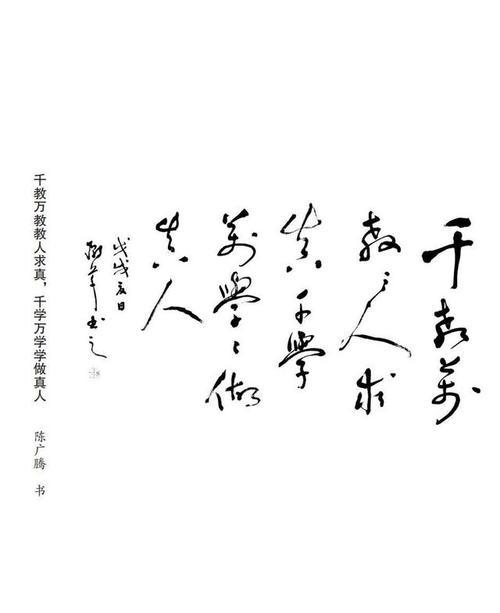 千教萬
教々人求
真千學
萬學々做
真人
戊戌夏日
书之
千教万教教人求真，千学万学学做真人
陈广腾 书